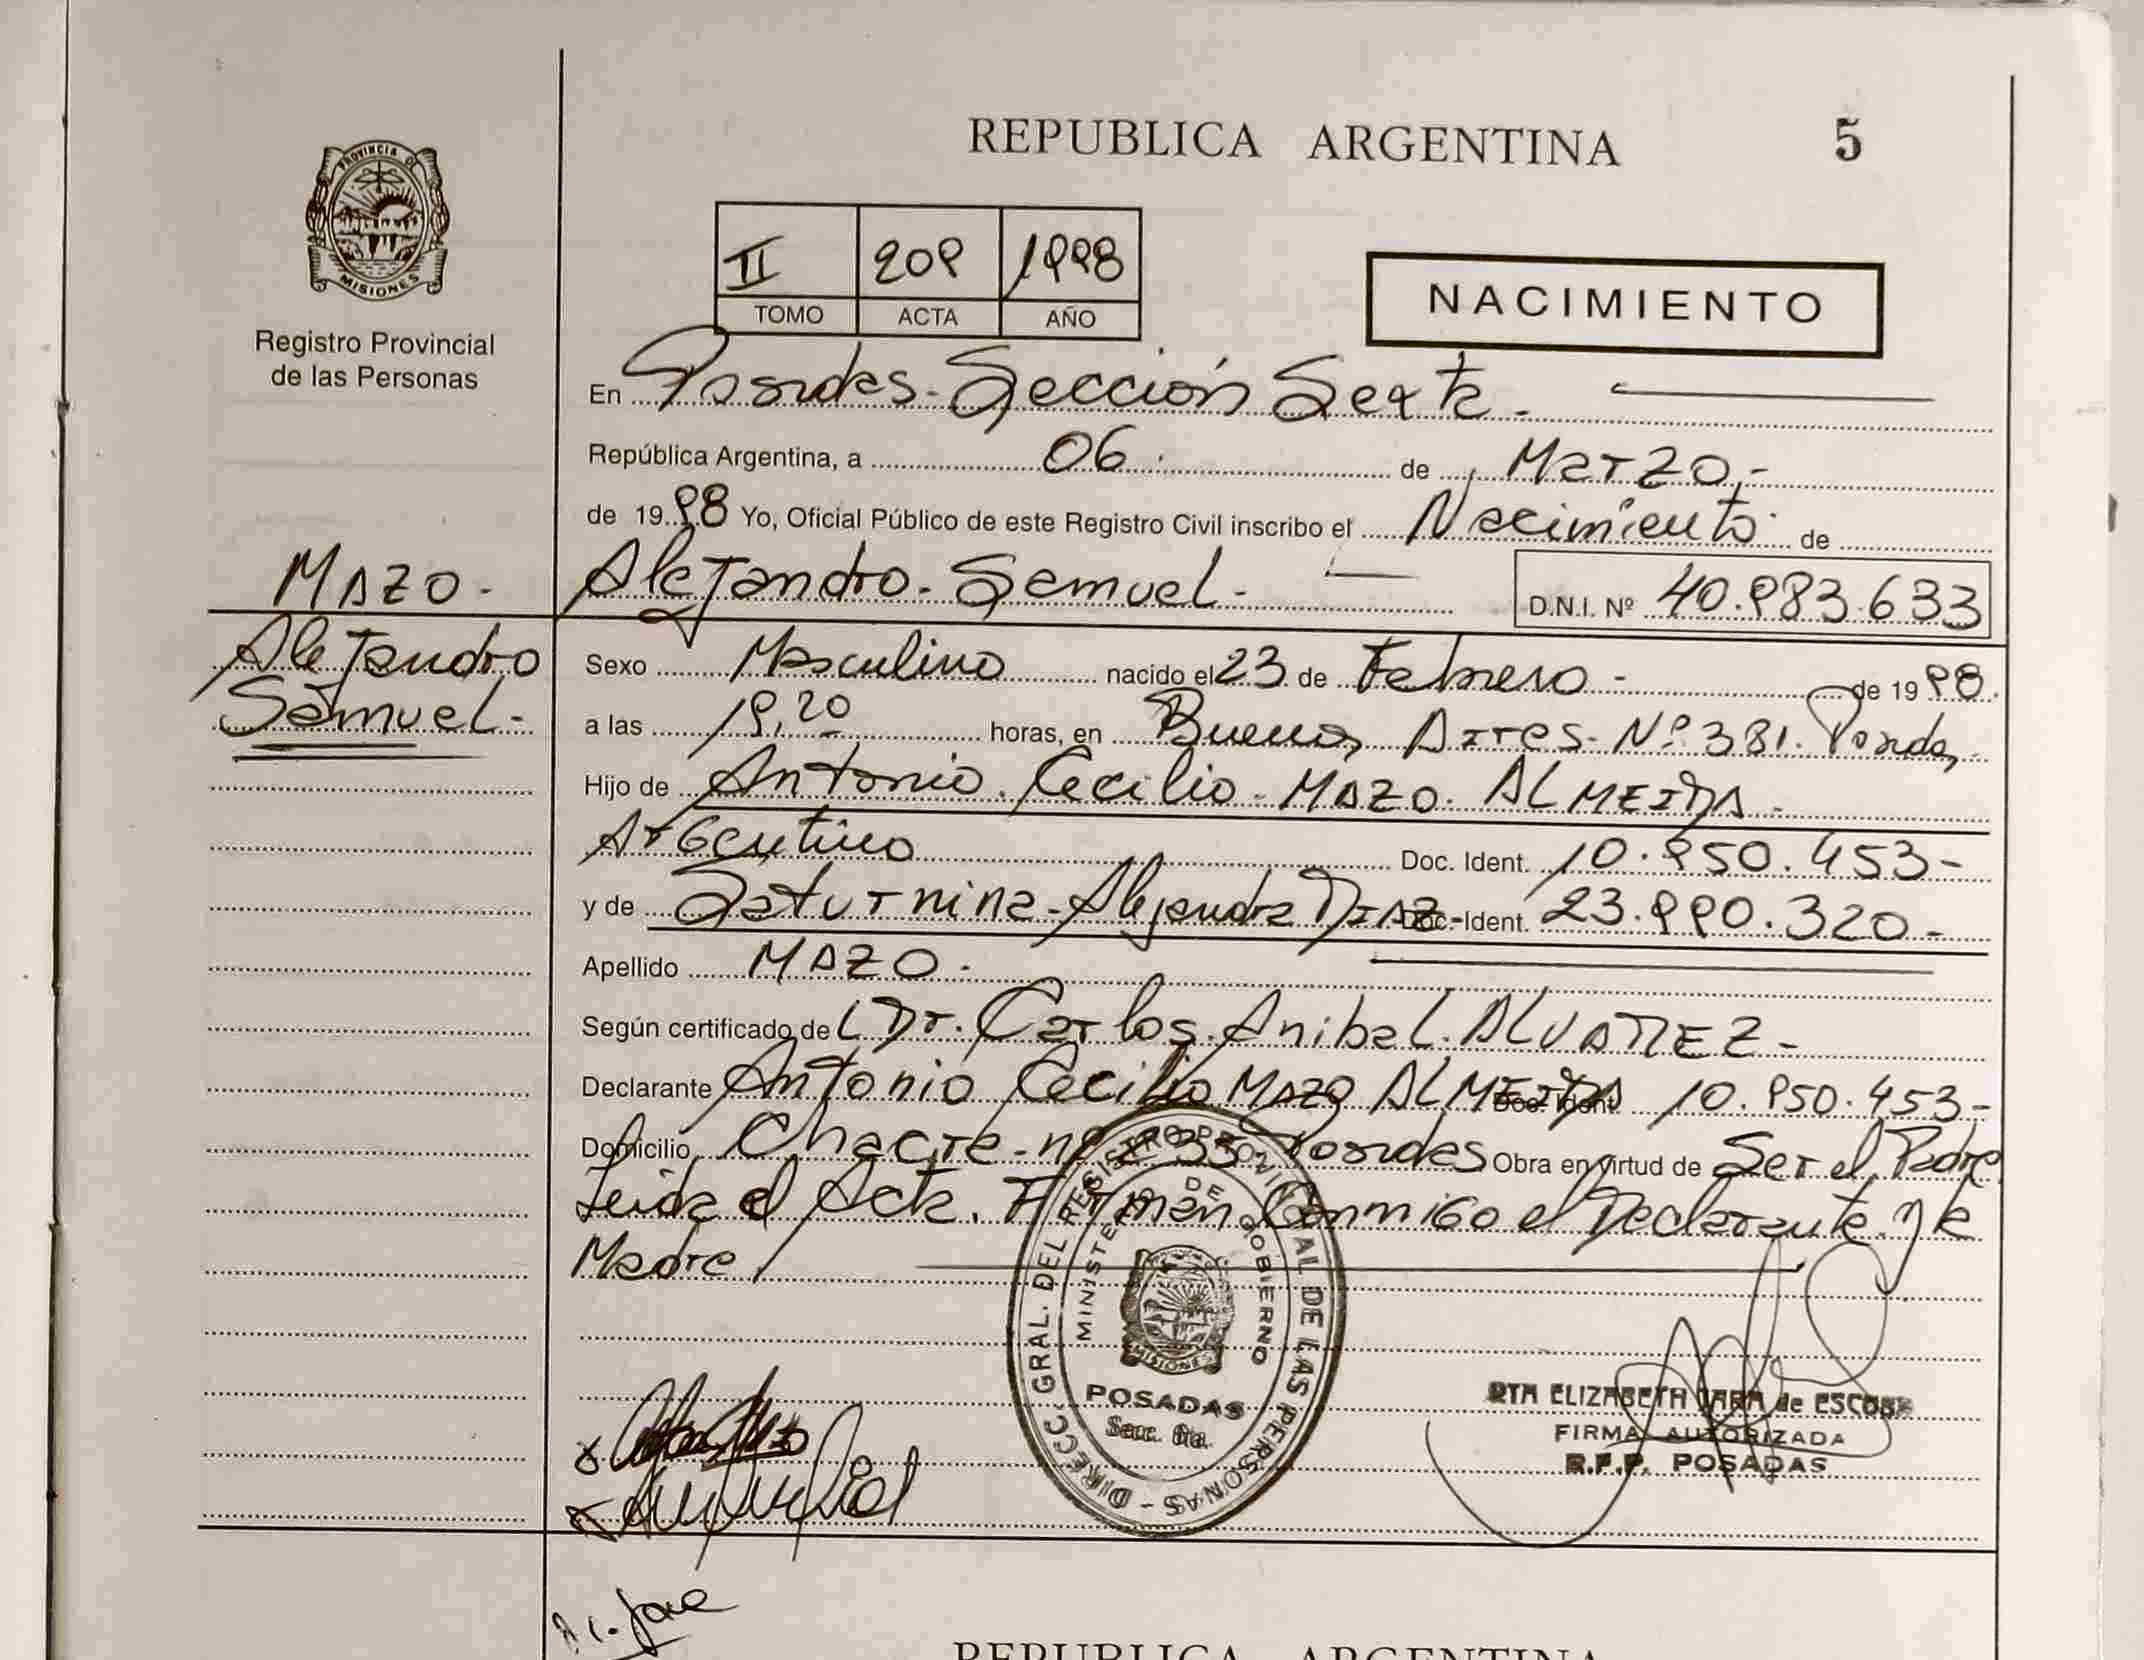 REPUBLICA ARGENTINA 5
PROVINCIA DE MISIONES
Registro Provincial
de las Personas
II 209 1998
TOMO ACTA AÑO
NACIMIENTO
En Posadas - Sección Sexta -
República Argentina, a 06 de Marzo -
de 1998 Yo, Oficial Público de este Registro Civil inscribo el Nacimiento de
MAZO - Alejandro Samuel - D.N.I. Nº 40.983.633
Alejandro
Samuel -
Sexo Masculino nacido el 23 de Febrero - de 1998.
a las 19,20 horas, en Buenos Aires Nº 381. Posadas
Hijo de Antonio Cecilio - MAZO ALMEIDA -
Argentino Doc. Ident. 10.950.453 -
y de Saturnina - Alejandra DIAZ - Doc. Ident. 23.990.320 -
Apellido MAZO -
Según certificado del Dr. Carlos Anibal ALVAREZ -
Declarante Antonio Cecilio MAZO ALMEIDA Doc. Ident. 10.950.453 -
Domicilio Chacra - nº 233 - Posadas Obra en virtud de Ser el Padre
Leida el Acta. Firman Conmigo el Declarante y la
Madre
DIRECC. GRAL. DEL REGISTRO PROVINCIAL DE LAS PERSONAS -
MINISTERIO DE GOBIERNO
MISIONES
POSADAS
Secc. 6ta.
RTA ELIZABETH JARA de ESCOBAR
FIRMA AUTORIZADA
R.P.P. POSADAS
REPUBLICA ARGENTINA